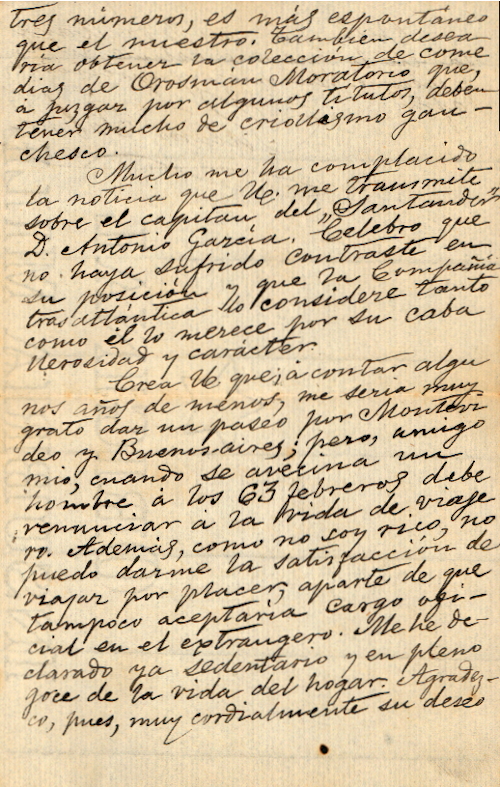 tres números, es más espontáneo
que el nuestro. Tambien desea-
ria obtener la colección de come
dias de Orosman Moratorio que,
á juzgar por algunos títulos, deben
tener mucho de criollismo gau-
chesco.
Mucho me ha complacido
la noticia que U. me transmite
sobre el capitan del "Santander"
D. Antonio García. Celebro que
no haya sufrido contraste en
su posición y que la Compañia
trasatlántica lo considere tanto
como él lo merece por su caba
llerosidad y carácter.
Crea U. que, á contar algu
nos años de menos, me seria muy
grato dar un paseo por Montevi
deo y Buenos-aires; pero, amigo
mio, cuando se avecina un
hombre á los 63 febreros debe
renunciar á la vida de viaje
ro. Ademas, como no soy rico, no
puedo darme la satisfacción de
viajar por placer, aparte de que
tampoco aceptaria cargo ofi-
cial en el extrangero. Me he de-
clarado ya sedentario y en pleno
goce de la vida del hogar. Agradez-
co, pues, muy cordialmente su deseo